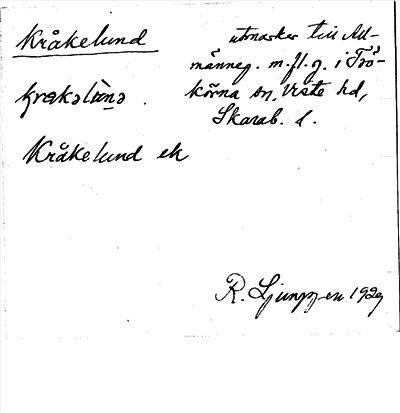 Kråkelund
utmarker till All-
männeg. m.fl. g. i Trö-
körna sn, Viste hd,
Skarab. l.
Kråkelund ek
R. Ljunggren 1929